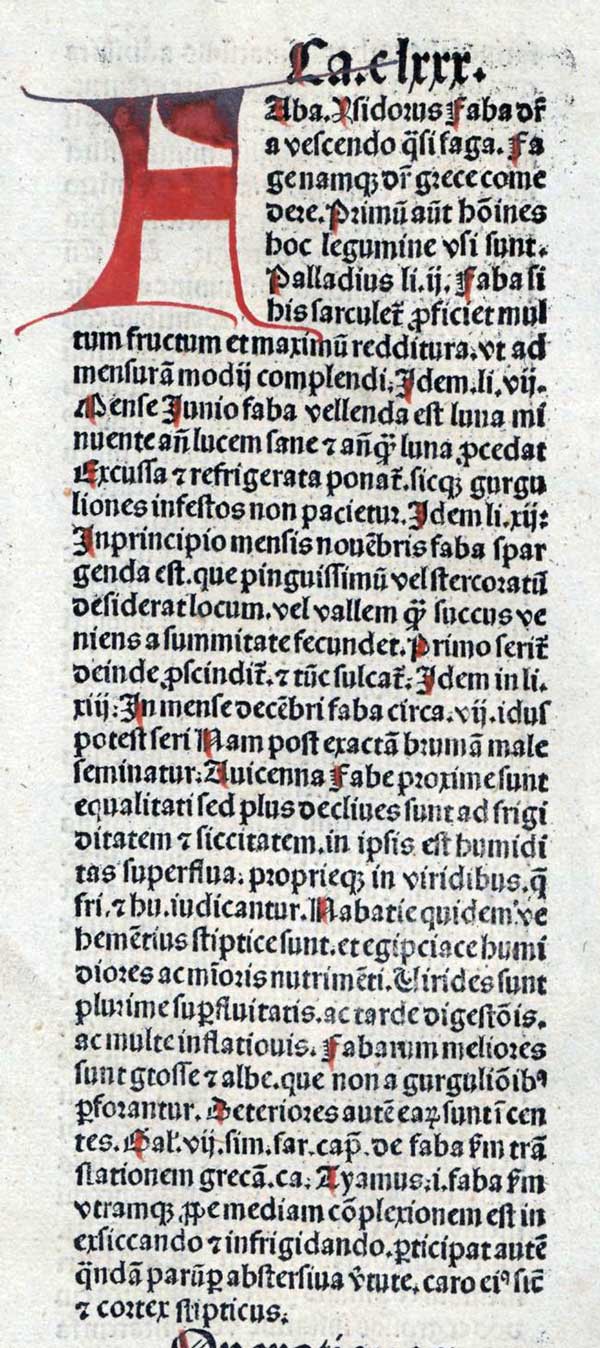 Ca.clxxx.
FAba. Ysidorus Faba dr̃
a vescendo q̃si faga. Fa
ge namqꝫ dr̃ grece come
dere. Primū aūt hōines
hoc legumine vsi sunt.
Palladius li.ij. Faba si
bis sarculet̃ ꝓficiet mul
tum fructum et maximū redditura. vt ad
mensurā modij complendi. Idem. li. vij.
Mense Junio faba vellenda est luna mi
nuente añ lucem sane ⁊ añ q̃ꝫ luna ꝓcedat
Excussa ⁊ refrigerata ponat̃. sicqꝫ gurgu
liones infestos non pacietur. Idem li. xij:
In principio mensis nouēbris faba spar
genda est. que pinguissimū vel stercoratū
desiderat locum. vel vallem q̃ꝫ succus ve
niens a summitate fecundet. Primo serit̃
deinde ꝓscindit̃. ⁊ tūc sulcat̃: Idem in li.
xiij: In mense decēbri faba circa. vij. idus
potest seri Nam post exactā brumā male
seminatur: Auicenna Fabe proxime sunt
equalitati sed plus decliues sunt ad frigi
ditatem ⁊ siccitatem. in ipsis est humidi
tas superflua. proprieqꝫ in viridibus. q̃
fri. ⁊ hu. iudicantur. Nabatie quidem ve
hemētius stiptice sunt. et egipciace humi
diores ac mīoris nutrimēti. Virides sunt
plurime suꝑfluitatis. ac tarde digestōis.
ac multe inflatiouis. Fabarum meliores
sunt grosse ⁊ albe. que non a gurguliōibꝰ
ꝑforantur. Deteriores autē eaꝝ sunt ī cen
tes. Gal'. vij. sim. far. cap̄. de faba f̃m trā
slationem grecā. ca: Ayamus. i. faba f̃m
vtramqꝫ ꝓpe mediam cōplexionem est in
exsiccando ⁊ infrigidando. ꝑticipat autē
q̃ndā parūꝑ abstersiua v̓tute. caro eiꝰ sic̄
⁊ cortex stipticus.